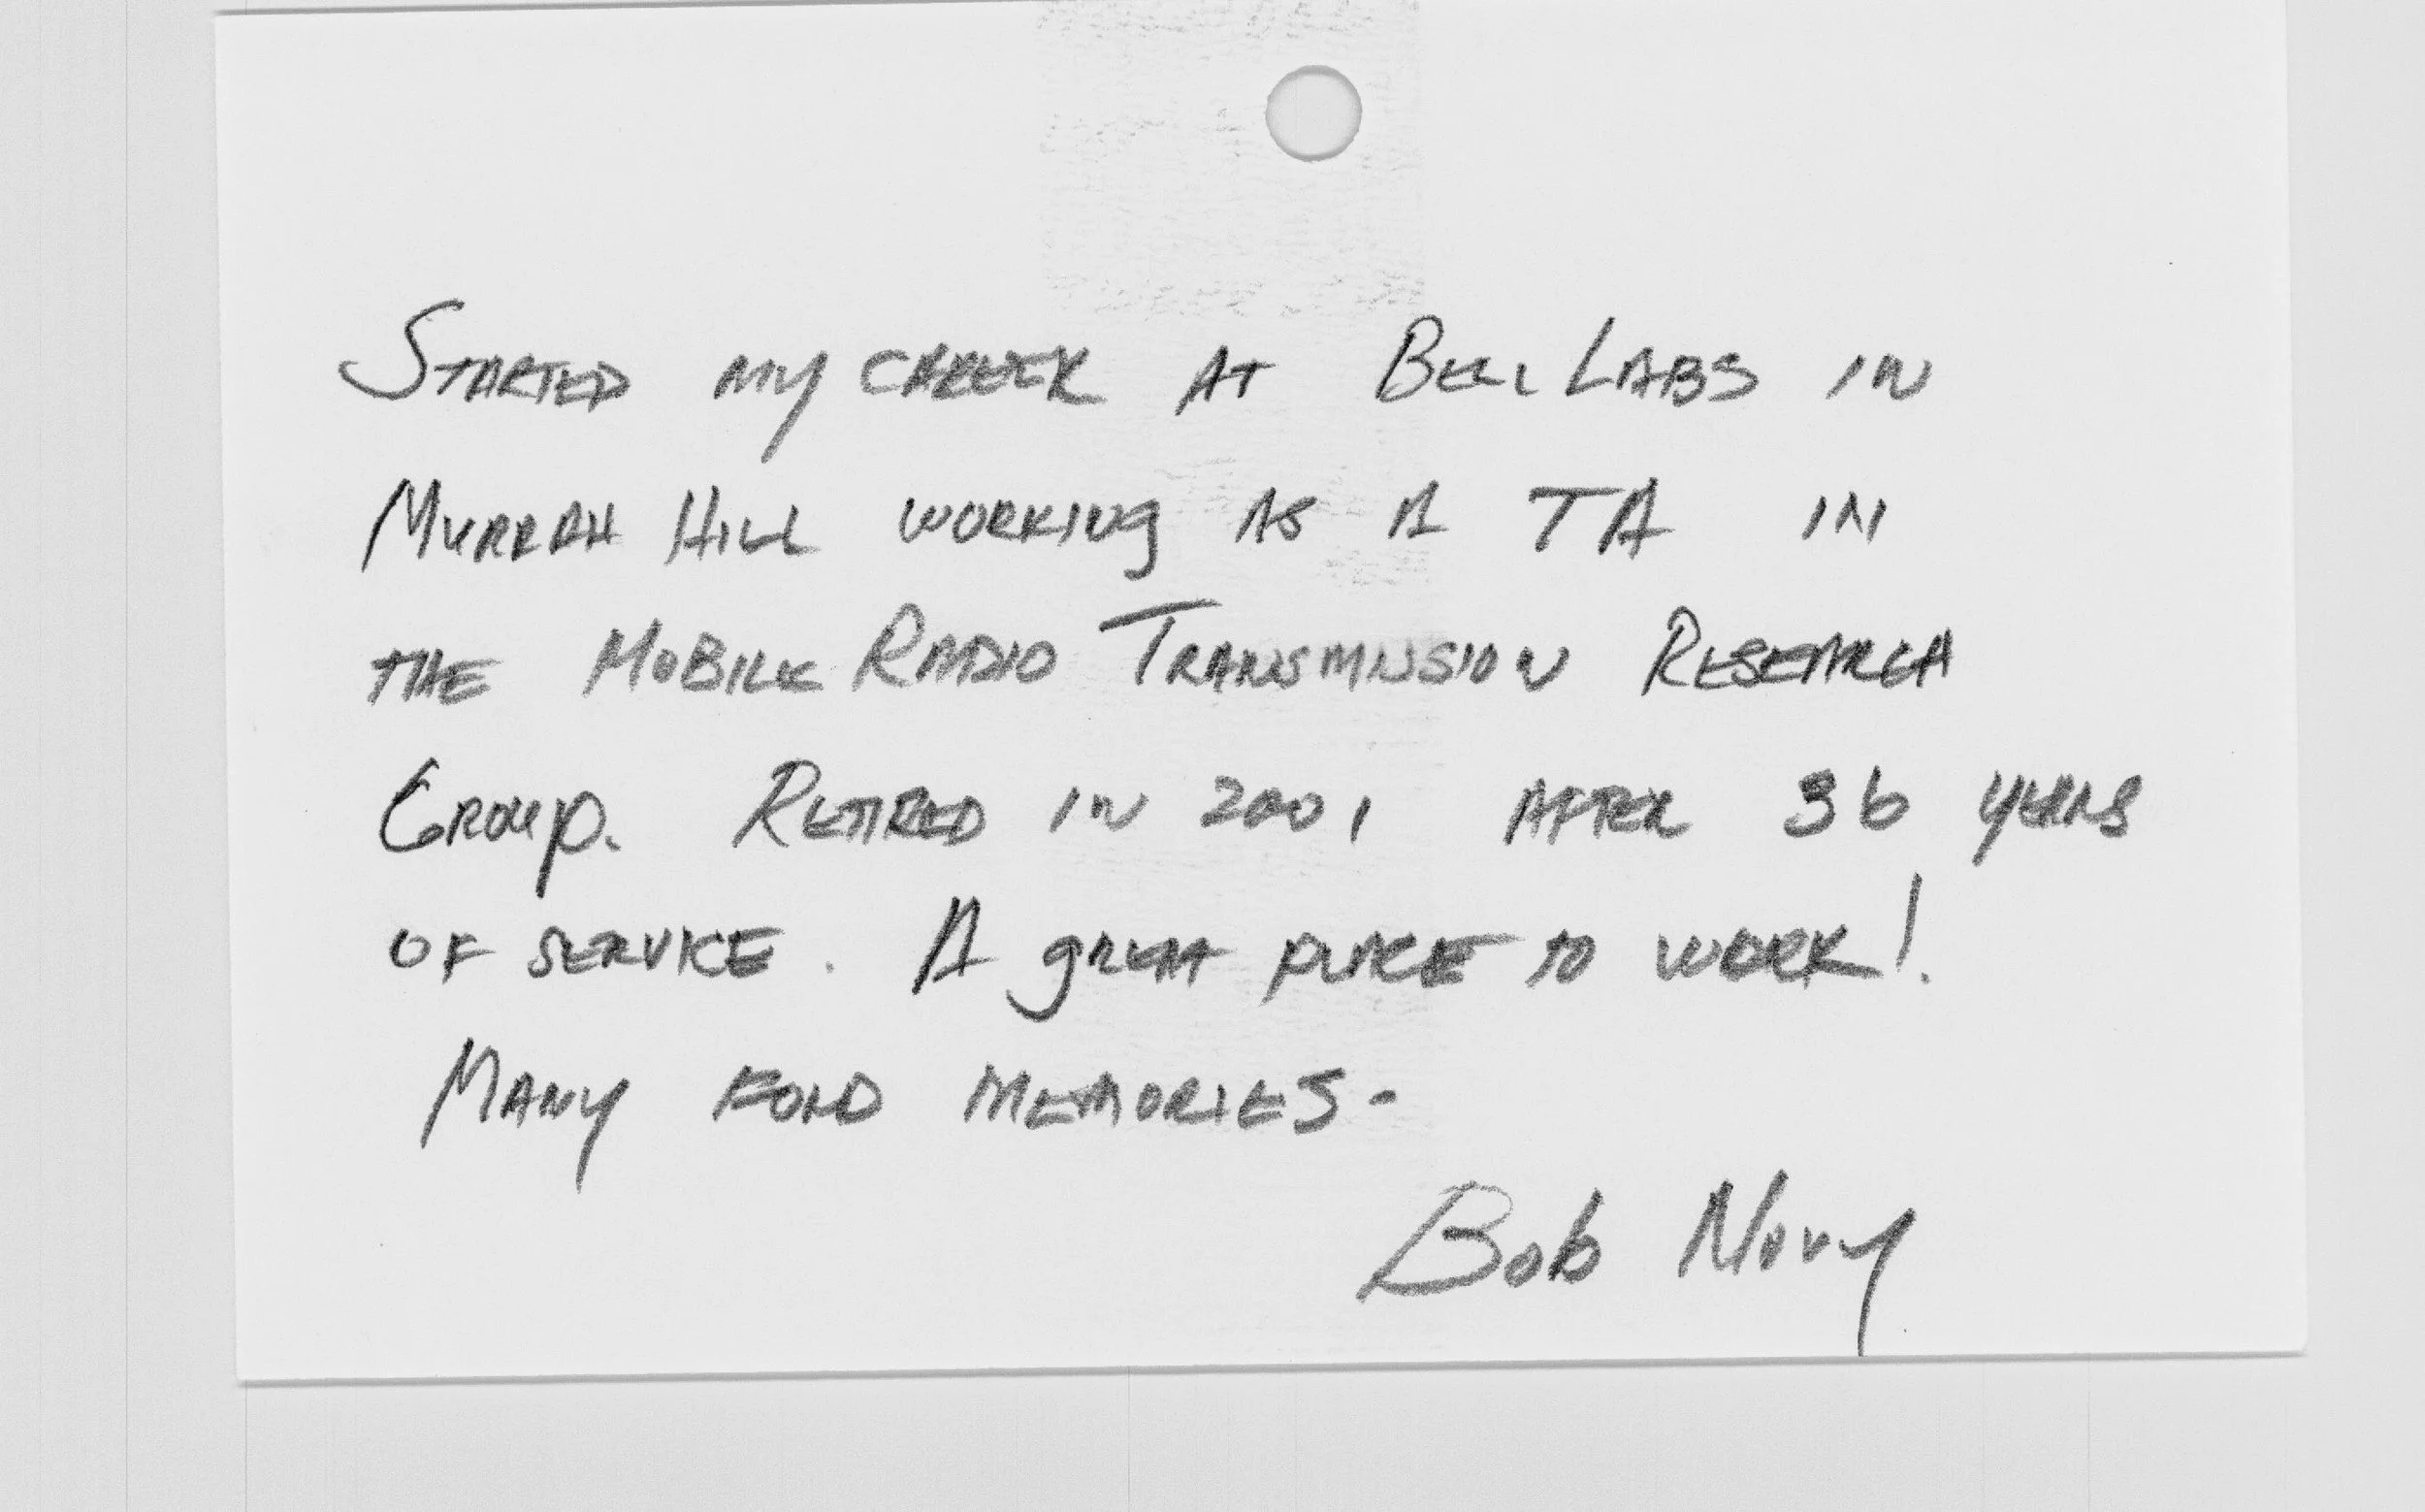 STARTED MY CAREER AT BELL LABS IN
MURRAH HILL WORKING AS A TA IN
THE MOBILE RADIO TRANSMISSION RESEARCH
GROUP. RETIRED IN 2001 AFTER 36 YEARS
OF SERVICE. A GREAT PLACE TO WORK!
MANY FOND MEMORIES-
Bob Novy